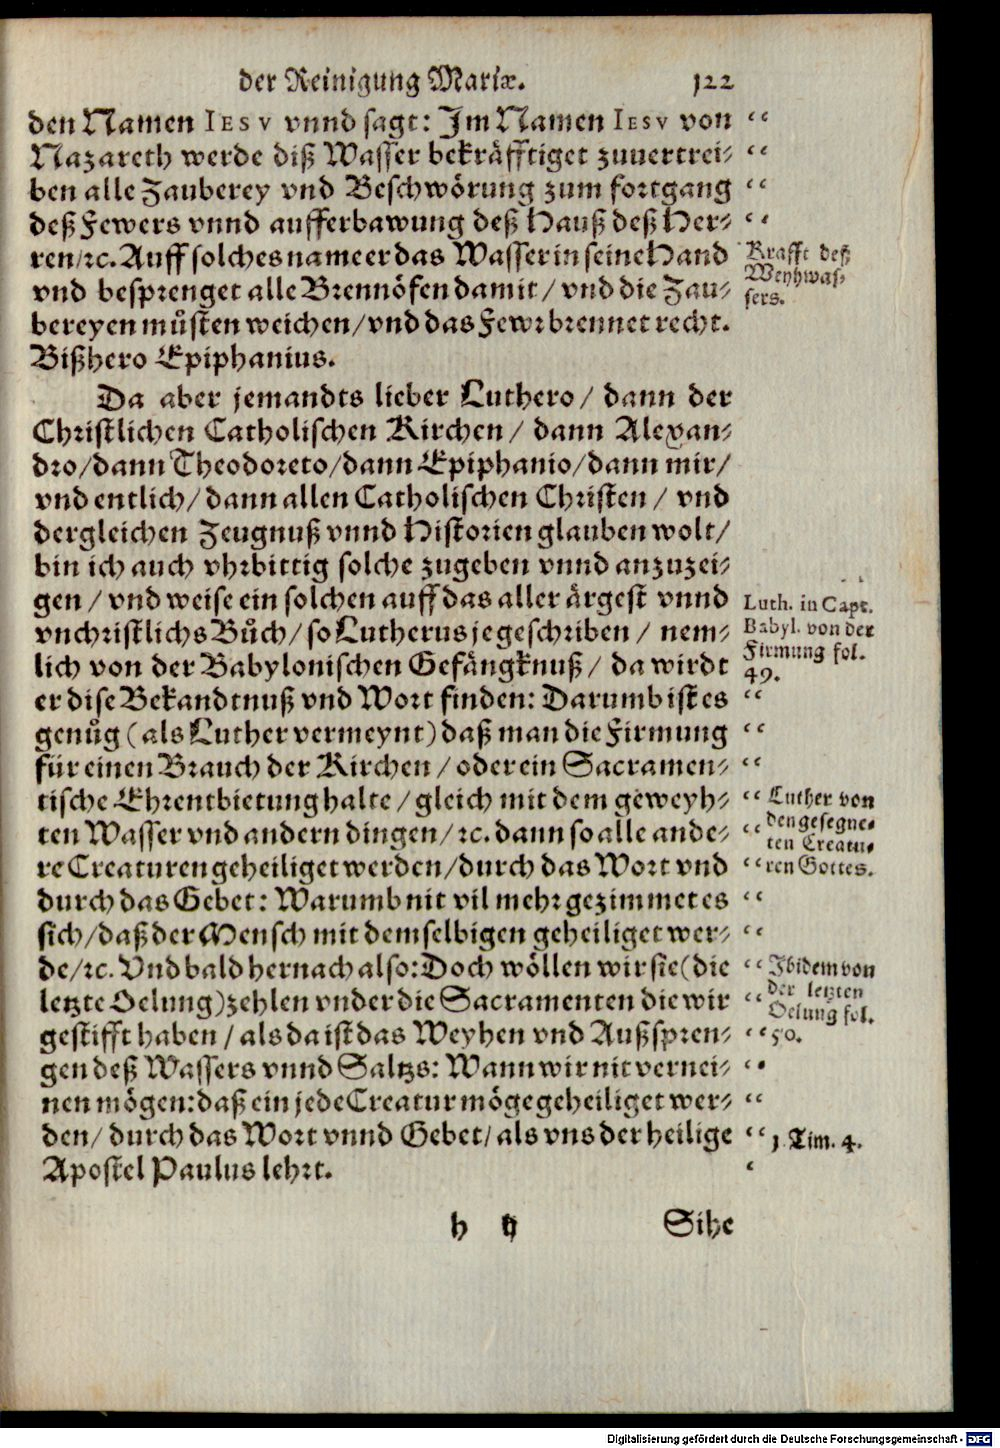 der Reinigung Mariæ. 122
den Namen IESV vnnd sagt: Im Namen IESV von
Nazareth werde diß Wasser bekräfftiget zuuertrei-
ben alle Zauberey vnd Beschwörung zum fortgang
deß Fewers vnnd aufferbawung deß Hauß deß Her-
ren/ꝛc. Auff solches name er das Wasser in seine Hand
vnd besprenget alle Brennöfen damit/ vnd die Zau-
bereyen můsten weichen/vnd das Fewr brennet recht.
Bißhero Epiphanius.
Krafft deß
Weyhwas-
sers.
Da aber jemandts lieber Luthero/ dann der
Christlichen Catholischen Kirchen/ dann Alexan-
dro/dann Theodoreto/dann Epiphanio/dann mir/
vnd entlich/ dann allen Catholischen Christen/ vnd
dergleichen Zeugnuß vnnd Historien glauben wolt/
bin ich auch vhrbittig solche zugeben vnnd anzuzei-
gen/ vnd weise ein solchen auff das aller ärgest vnnd
vnchristlichs Bůch/ so Lutherus je geschriben/ nem-
lich von der Babylonischen Gefängknuß/ da wirdt
er dise Bekandtnuß vnd Wort finden: Darumb ist es
genůg (als Luther vermeynt) daß man die Firmung
für einen Brauch der Kirchen/ oder ein Sacramen-
tische Ehrentbietung halte/ gleich mit dem geweyh-
ten Wasser vnd andern dingen/ꝛc. dann so alle ande-
re Creaturen geheiliget werden/durch das Wort vnd
durch das Gebet: Warumb nit vil mehr gezimmet es
sich/daß der Mensch mit demselbigen geheiliget wer-
de/ꝛc. Vnd bald hernach also: Doch wöllen wir sie (die
letzte Oelung) zehlen vnder die Sacramenten die wir
gestifft haben/ als da ist das Weyhen vnd Außspren-
gen deß Wassers vnnd Saltzs: Wann wir nit vernei-
nen mögen: daß ein jede Creatur möge geheiliget wer-
den/ durch das Wort vnnd Gebet/ als vns der heilige
Apostel Paulus lehrt.
Luth. in Capt.
Babyl. von der
Firmung fol.
49.
Luther von
den gesegne-
ten Creatu-
ren Gottes.
Ibidem von
der letzten
Oelung fol.
50.
1 Tim. 4.
h ij Sihe
Digitalisierung gefördert durch die Deutsche Forschungsgemeinschaft - DFG